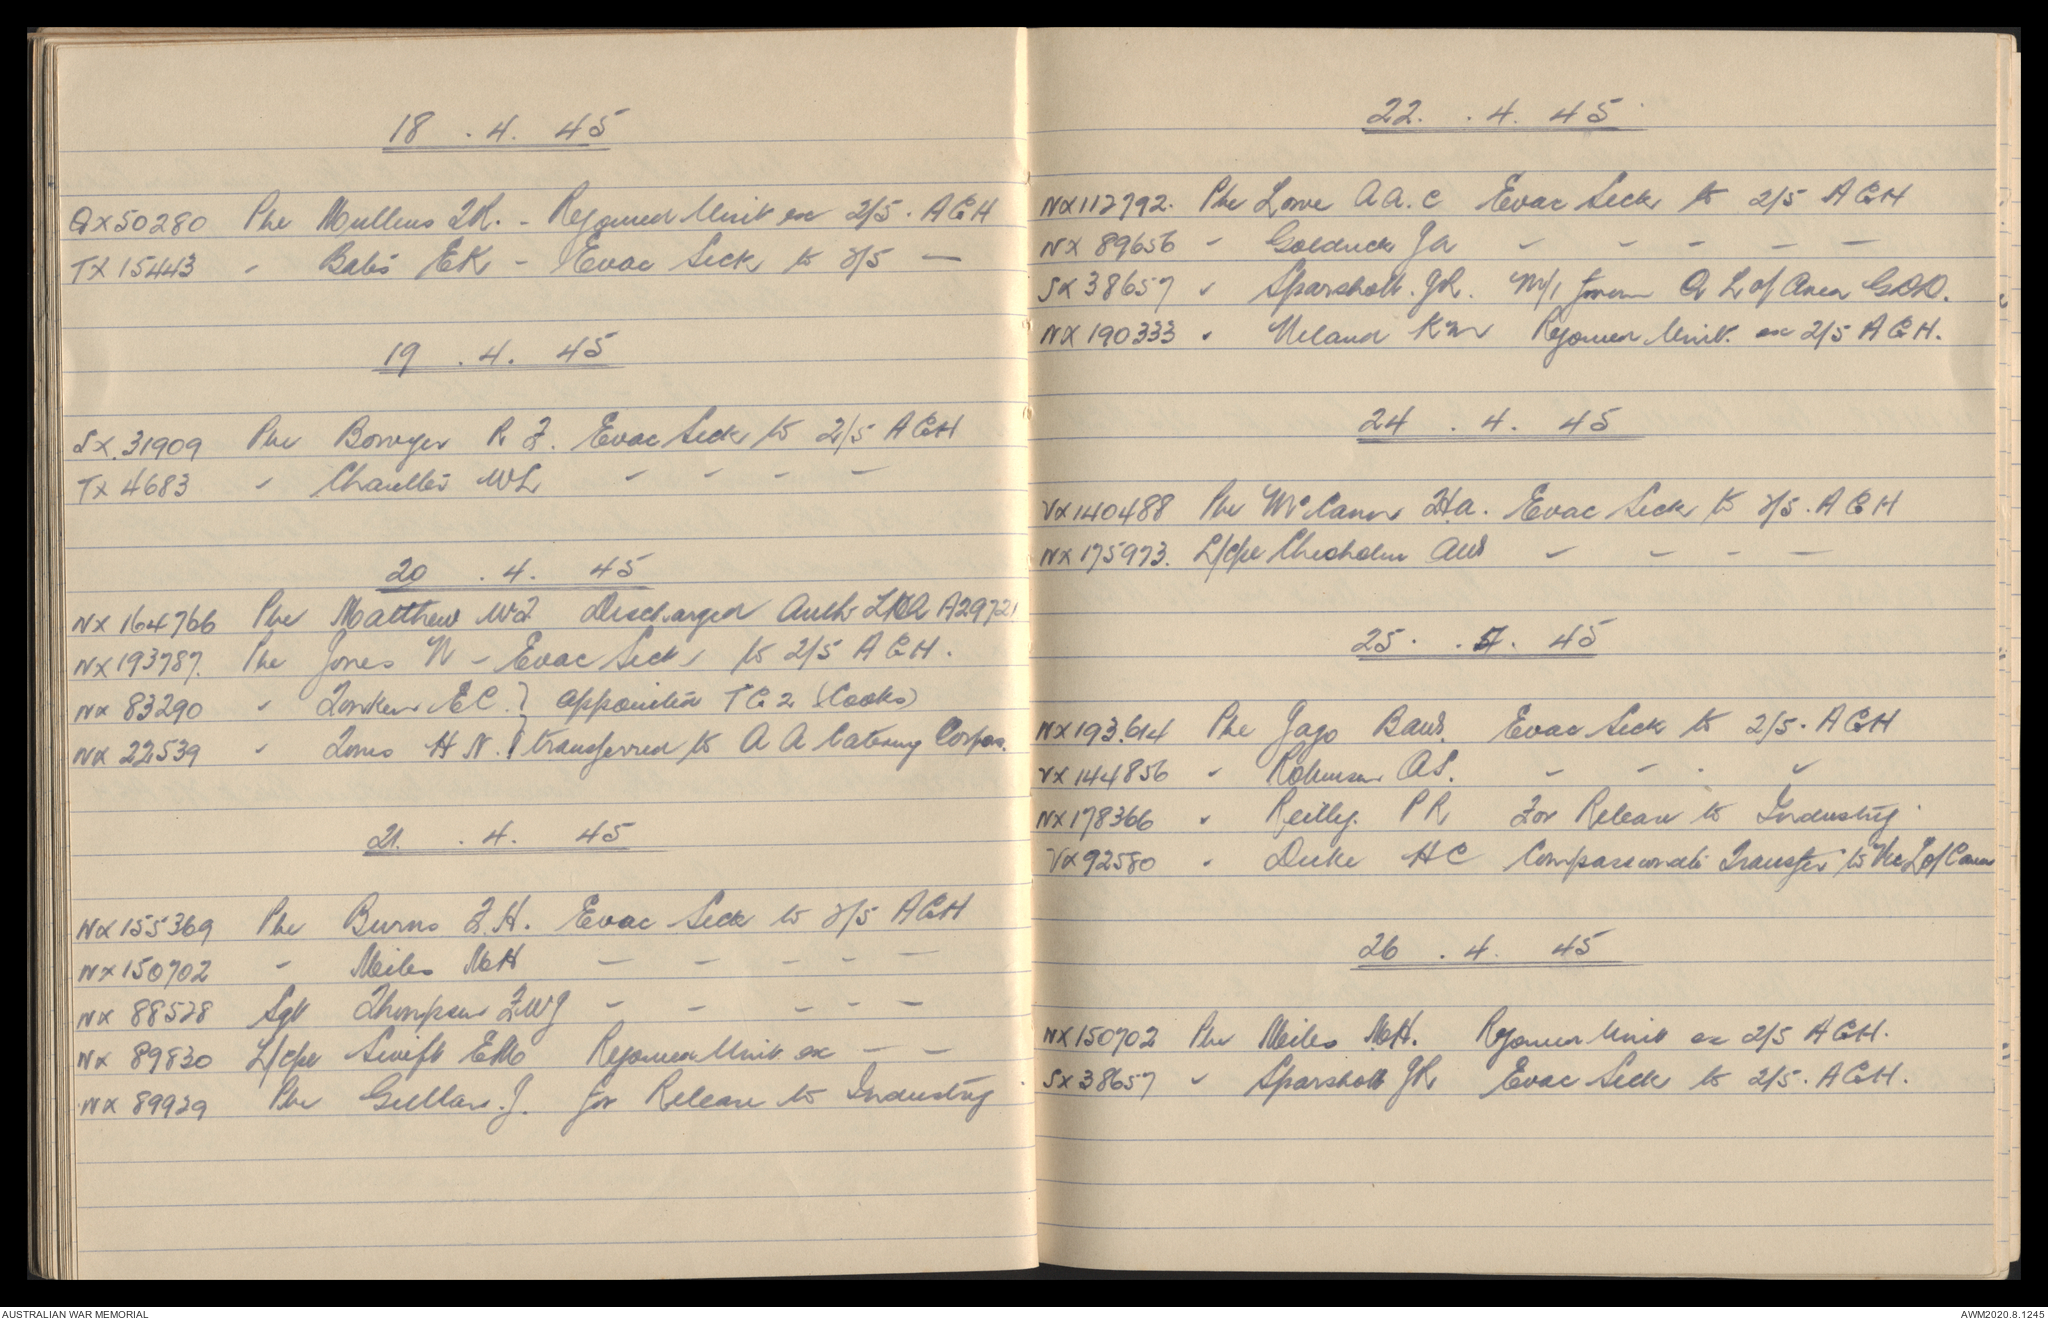 18 . 4. 45
QX50280 Pte Mullens J.R. - Rejoined Unit ex 2/5. AGH
TX 15443 " Bates EK - Evac Sick to 2/5 —
19 . 4. 45
SX.31909 Pte Bowyer R F. Evac Sick to 2/5 AGH
TX 4683 " Chandler WL - - - -
20 . 4. 45
NX 164766 Pte Matthew WJ Discharged Auth A29721
NX 193787. Pte Jones N - Evac Sick to 2/5 AGH.
NX 83290 " EC. } appointed TG 2 (Cooks)
NX 22539 " H N. } transferred to A A Catering Corps.
21. . 4. 45
NX155369 Pte Burns F.H. Evac Sick to 2/5 AGH
NX150702 - Miles McH - - - - -
NX 88528 Sgt Thompson FWJ - - - - -
NX 89830 L/Cpl Swift EM Rejoined Unit ex - -
NX 89929 Pte J. for Release to Industry
22. . 4. 45
NX112792. Pte Lowe A A. C Evac Sick to 2/5 AGH
NX 89656 " Goldrick JA - - - - -
SX 38657 " Sparshott. JR. M/I from Q L of Area GDD.
NX 190333 " Neland KM Rejoined Unit. ex 2/5 AGH.
24 . 4. 45
VX140488 Pte McCann HA. Evac Sick to 2/5. AGH
NX 175973. L/Cpl Chisholm AW - - - -
25. . 4. 45
NX193614 Pte Jago BAW. Evac Sick to 2/5. AGH
VX144856 " Robinson AS. - - . "
NX178366 " Reilly. PR For Release to Industry
VX92580 " Duke HC Compassionate Transfer to Vic L of C area
26 . 4. 45
NX150702 Pte Miles McH. Rejoined Unit ex 2/5 AGH.
SX38657 " Sparshott JR Evac Sick to 2/5. AGH.
AUSTRALIAN WAR MEMORIAL
AWM2020.8.1245